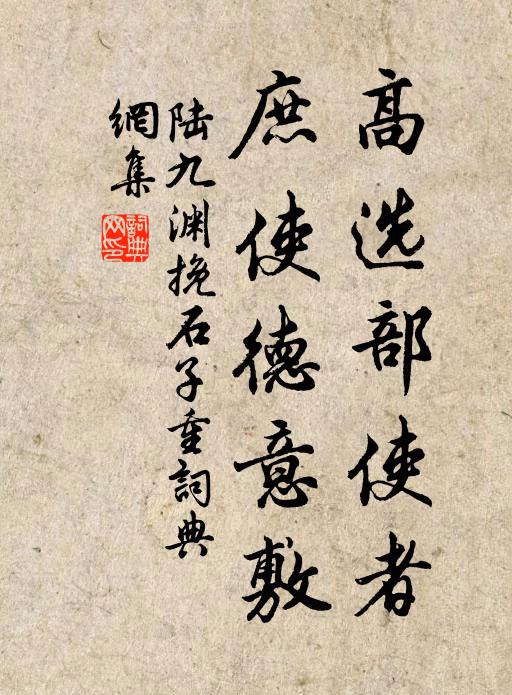 高选部使者
庶使德意敷
陆九渊挽石子重詞典
網集
詞典
网印